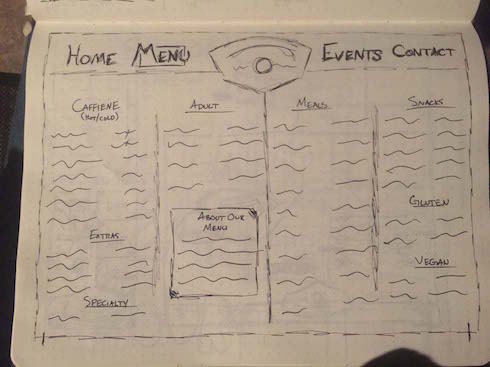 HOME MENU EVENTS CONTACT
CAFFIENE
(HOT/COLD)
EXTRAS
SPECIALTY
ADULT
ABOUT OUR
MENU
MEALS
SNACKS
GLUTEN
VEGAN